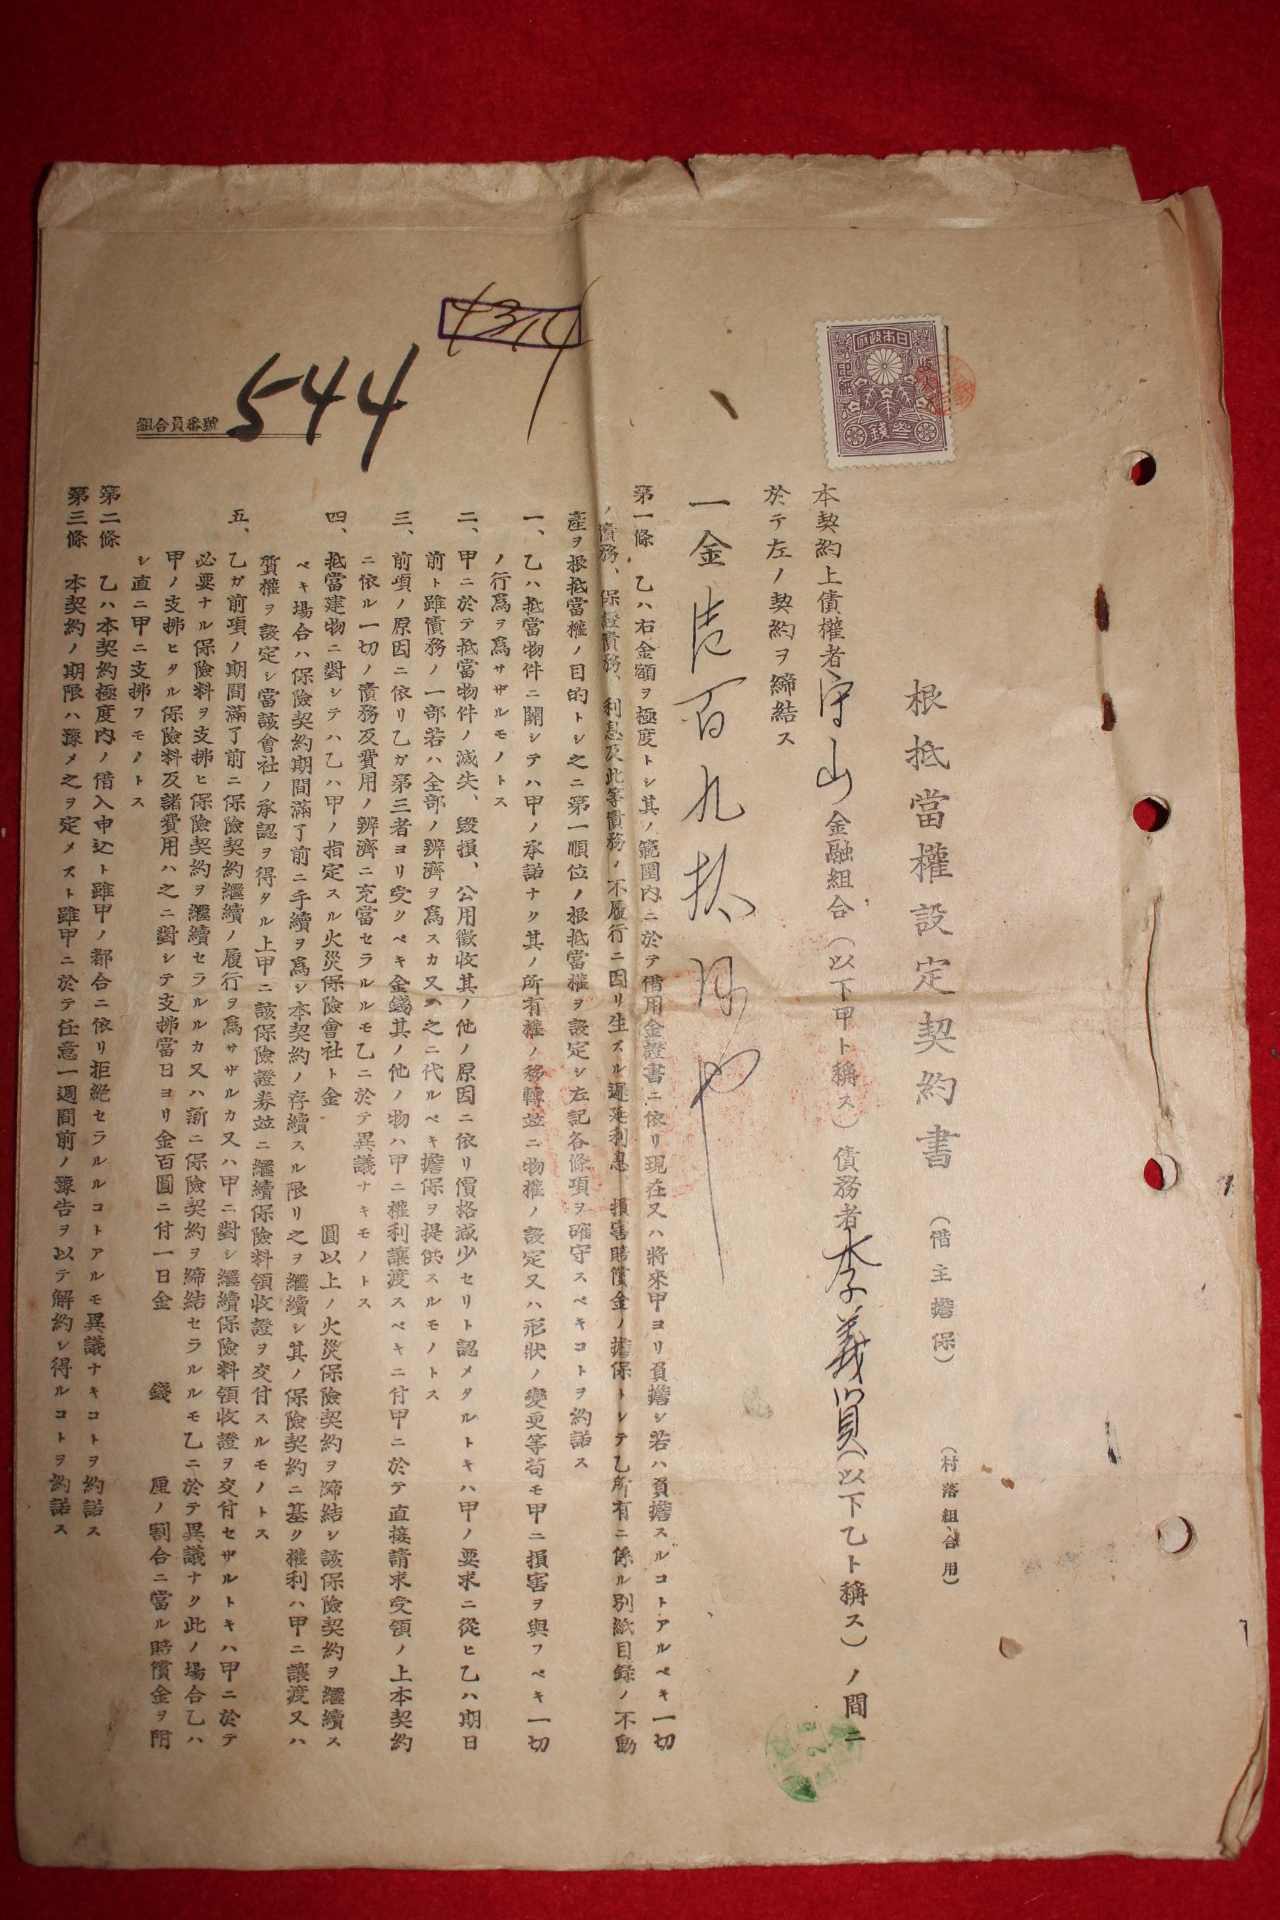 根抵當權設定契約書（借主擔保）
（村落組合用）
日本政府
收入印紙
參錢
本契約上債權者守山金融組合（以下甲ト稱ス）債務者李義賓（以下乙ト稱ス）ノ間ニ
於テ左ノ契約ヲ締結ス
一金壹百九拾圓也
第一條　乙ハ右金額ヲ極度トシ其ノ範圍内ニ於テ借用金證書ニ依リ現在又ハ將來甲ヨリ負擔シ若ハ負擔スルコトアルベキ一切
ノ債務、保證債務、利息及此等債務ノ不履行ニ因リ生スル遲延利息、損害賠償金ノ擔保トシテ乙所有ニ係ル別紙目録ノ不動
産ヲ根抵當權ノ目的トシ之ニ第一順位ノ根抵當權ヲ設定シ左記各條項ヲ確守スベキコトヲ約諾ス
一、乙ハ抵當物件ニ關シテハ甲ノ承諾ナク其ノ所有權ノ移轉竝ニ物權ノ設定又ハ形狀ノ變更等苟モ甲ニ損害ヲ與フベキ一切
ノ行爲ヲ爲サザルモノトス
二、甲ニ於テ抵當物件ノ滅失、毀損、公用徵收其ノ他ノ原因ニ依リ價格減少セリト認メタルトキハ甲ノ要求ニ從ヒ乙ハ期日
前ト雖債務ノ一部若ハ全部ノ辨濟ヲ爲スカ又ハ之ニ代ルベキ擔保ヲ提供スルモノトス
三、前項ノ原因ニ依リ乙ガ第三者ヨリ受クベキ金錢其ノ他ノ物ハ甲ニ權利讓渡スベキニ付甲ニ於テ直接請求受領ノ上本契約
ニ依ル一切ノ債務及費用ノ辨濟ニ充當セラルルモ乙ニ於テ異議ナキモノトス
四、抵當建物ニ對シテハ乙ハ甲ノ指定スル火災保險會社ト金　　　圓以上ノ火災保險契約ヲ締結シ該保險契約ヲ繼續ス
ベキ場合ハ保險契約期間滿了前ニ手續ヲ爲シ本契約ノ存續スル限リ之ヲ繼續シ其ノ保險契約ニ基ク權利ハ甲ニ讓渡又ハ
質權ヲ設定シ當該會社ノ承認ヲ得タル上甲ニ該保險證券竝ニ繼續保險料領收證ヲ交付スルモノトス
五、乙ガ前項ノ期間滿了前ニ保險契約繼續ノ履行ヲ爲サザルカ又ハ甲ニ對シ繼續保險料領收證ヲ交付セザルトキハ甲ニ於テ
必要ナル保險料ヲ支拂ヒ保險契約ヲ繼續セラルルカ又ハ新ニ保險契約ヲ締結セラルルモ乙ニ於テ異議ナク此ノ場合乙ハ
甲ノ支拂ヒタル保險料及諸費用ハ之ニ對シテ支拂當日ヨリ金百圓ニ付一日金　　錢　　厘ノ割合ニ當ル賠償金ヲ附
シ直ニ甲ニ支拂フモノトス
第二條　乙ハ本契約極度内ノ借入申込ト雖甲ノ都合ニ依リ拒絶セラルルコトアルモ異議ナキコトヲ約諾ス
第三條　本契約ノ期限ハ豫メ之ヲ定メスト雖甲ニ於テ任意一週間前ノ豫告ヲ以テ解約シ得ルコトヲ約諾ス
組合員番號 544